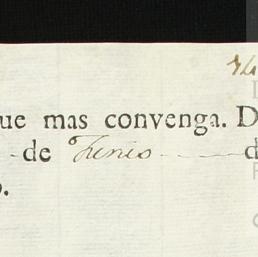 ue mas convenga. D
de Junio d
o.